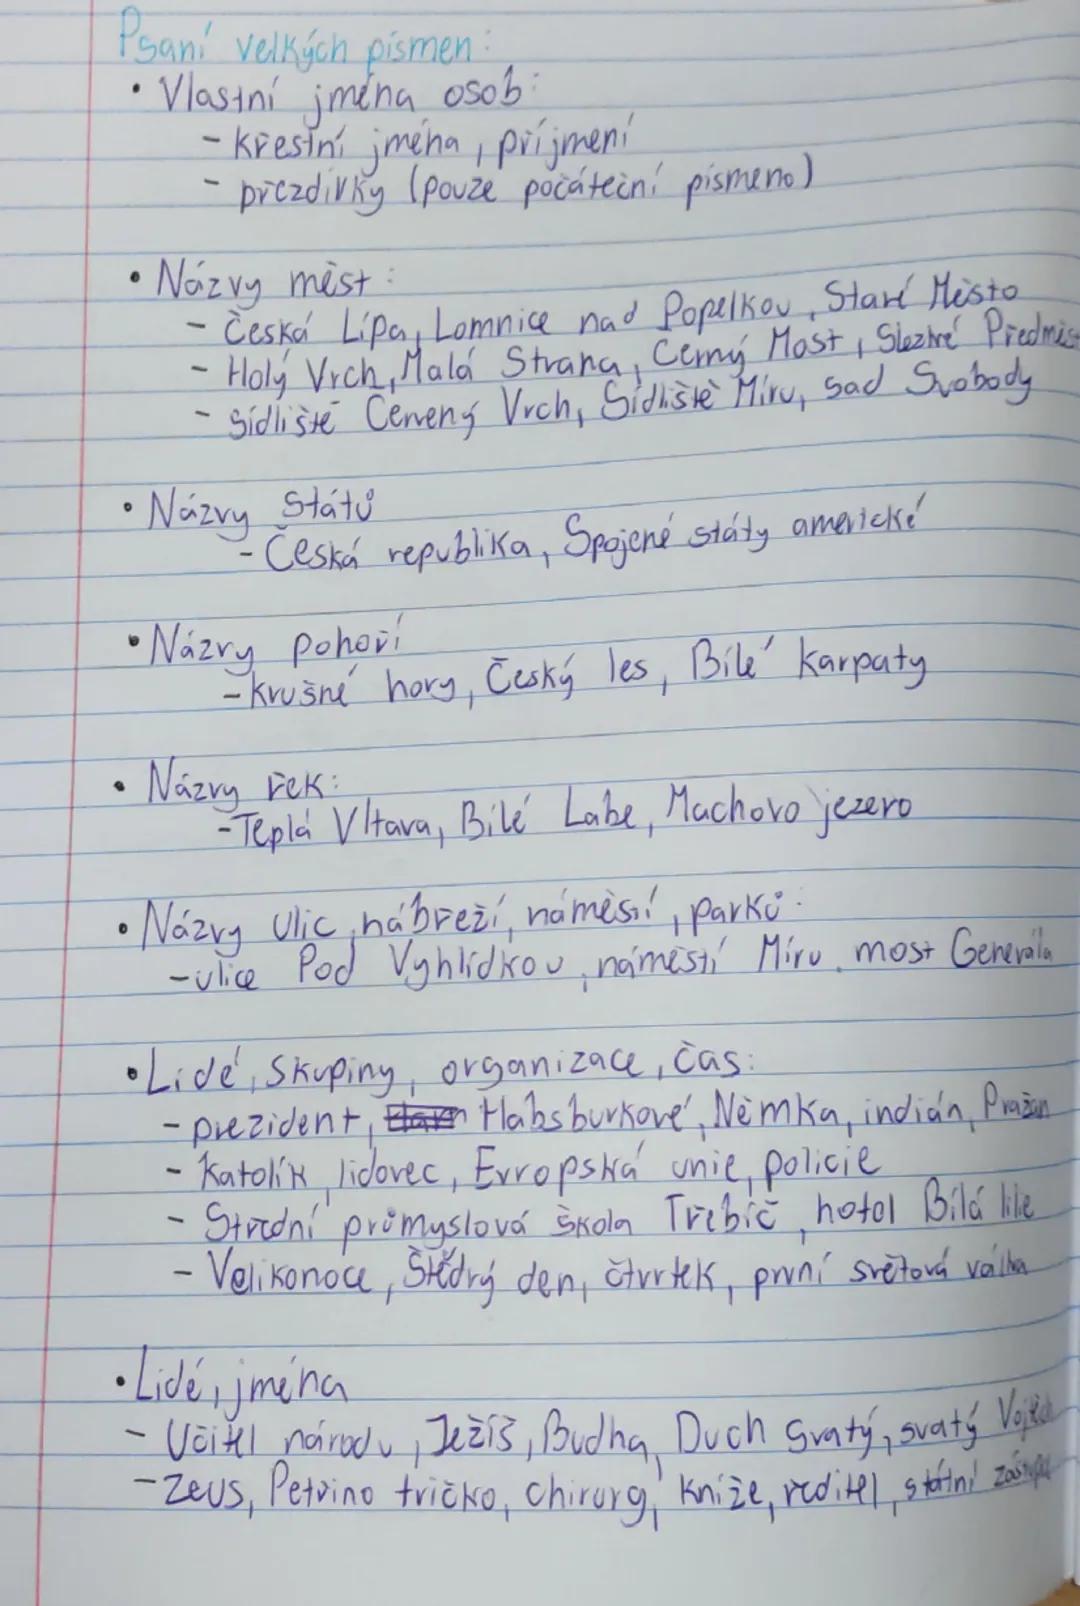 Psaní velkých písmen:
• Vlastní jména osob:
- křestní jména, příjmení
- přezdívky (pouze počáteční písmeno)
• Názvy měst:
- Česká Lípa, Lomnice nad Popelkou, Staré Město
- Holý Vrch, Malá Strana, Černý Most, Slezské Předměs
- Sídliště Červený Vrch, Sídliště Míru, sad Svobody
• Názvy států
- Česká republika, Spojené státy americké
• Názvy pohoří
- Krušné hory, Český les, Bílé Karpaty
• Názvy řek:
- Teplá Vltava, Bílé Labe, Machovo jezero
• Názvy ulic, nábřeží, náměstí, parků:
- ulice Pod Vyhlídkou, náměstí Míru, most Generála
• Lidé, skupiny, organizace, čas:
- prezident, Habsburkové, Němka, indián, Pražan
- Katolík, lidovec, Evropská unie, policie
- Střední průmyslová škola Třebíč, hotol Bílá lilie
- Velikonoce, Štědrý den, čtvrtek, první světová válka
• Lidé, jména
- Učitel národu, Ježíš, Budha, Duch Svatý, svatý Vojtěch
- Zeus, Petrino tričko, chirurg, kníže, ředitel, státní